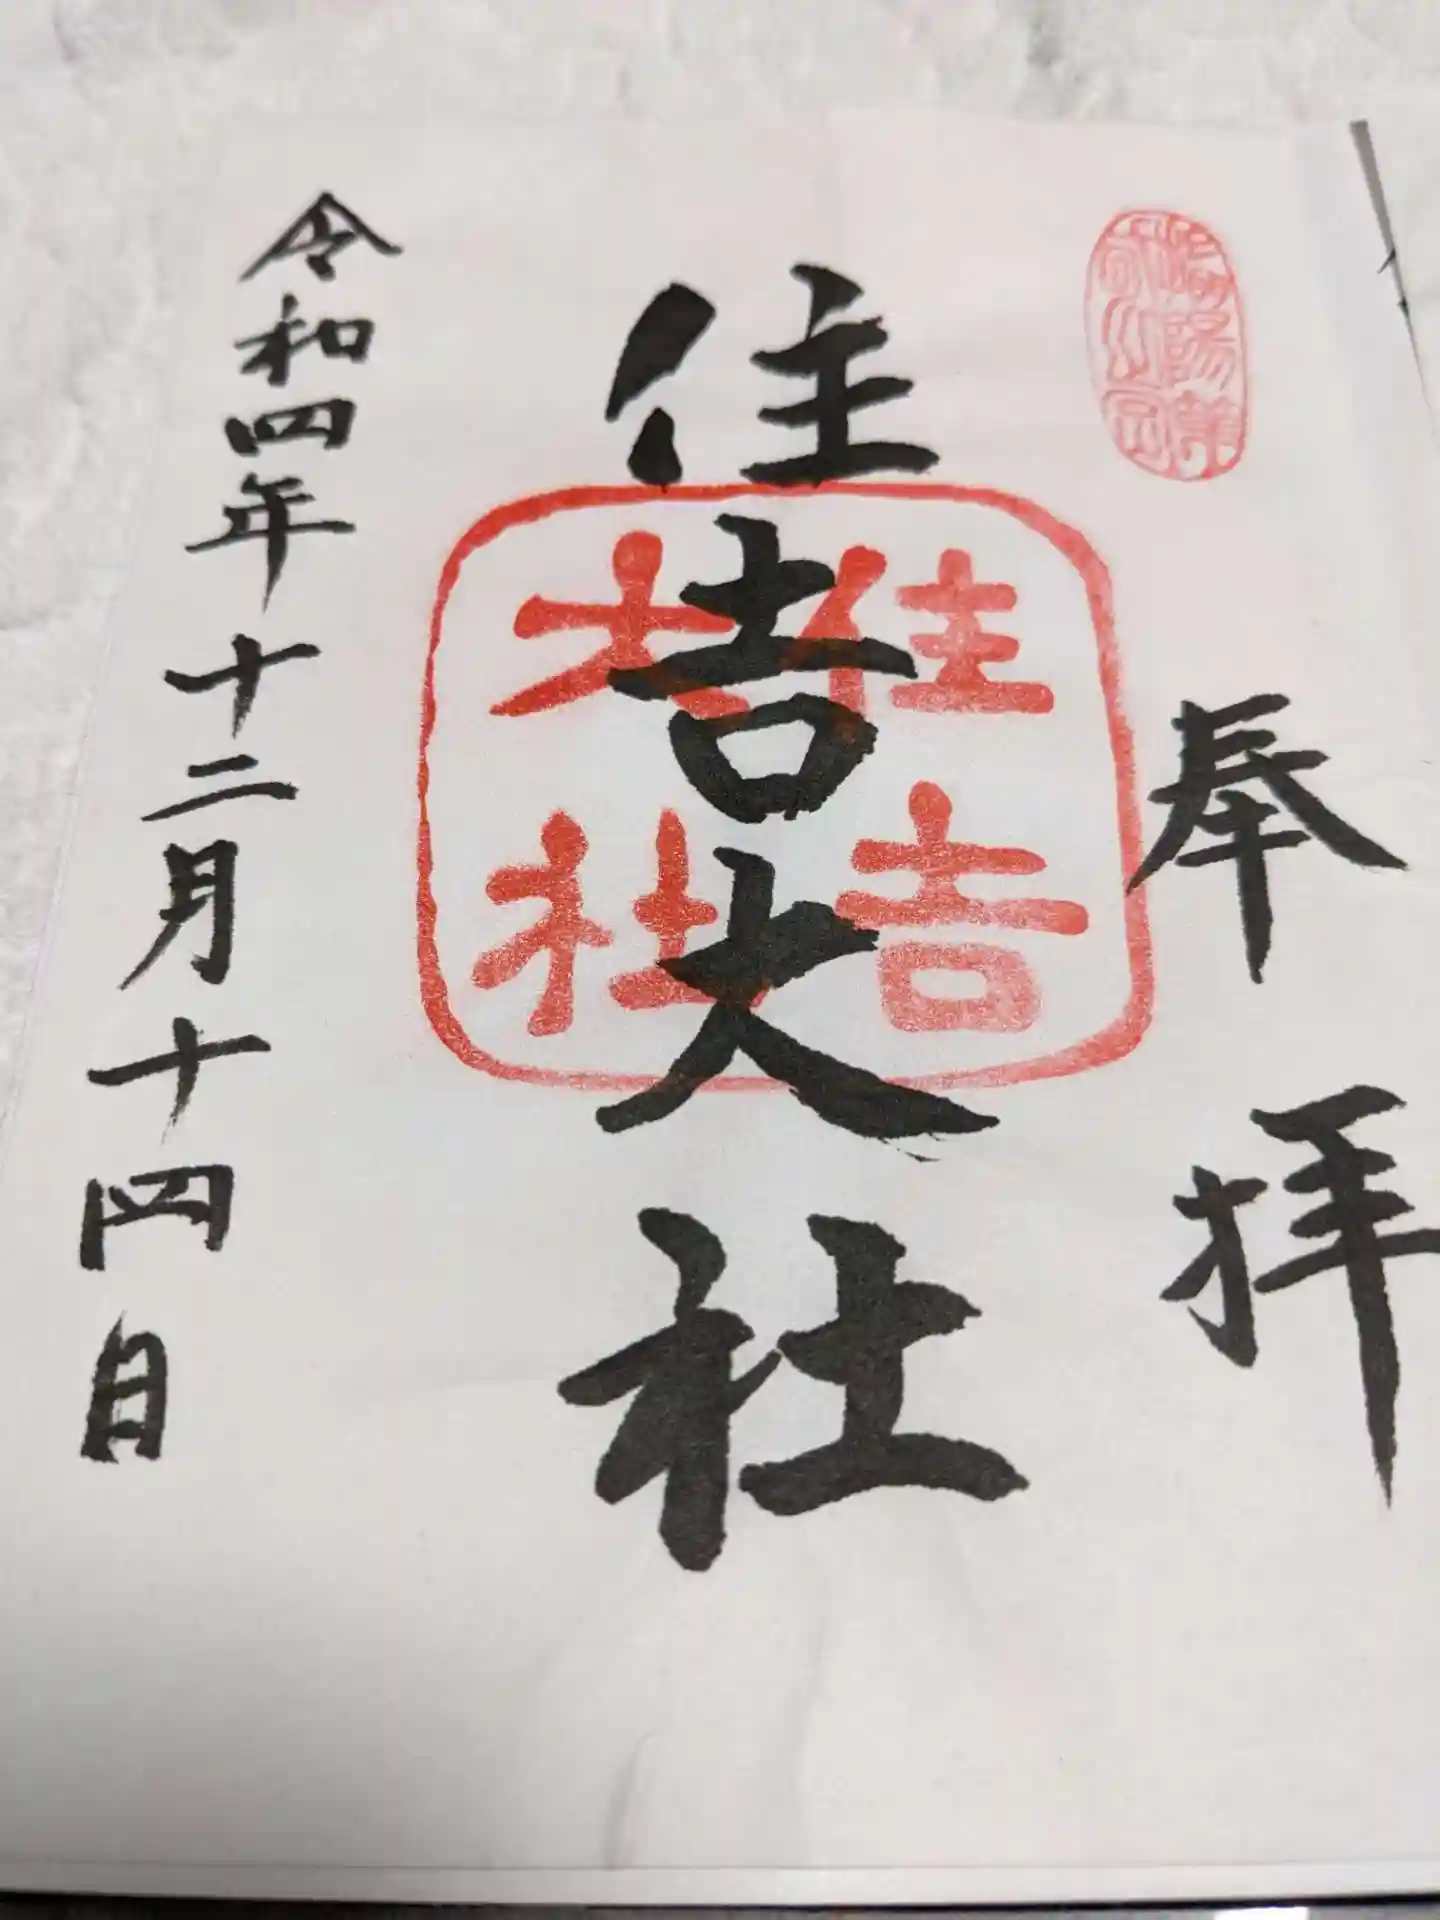 奉拝
住吉大社
住吉
大社
令和四年十二月十四日